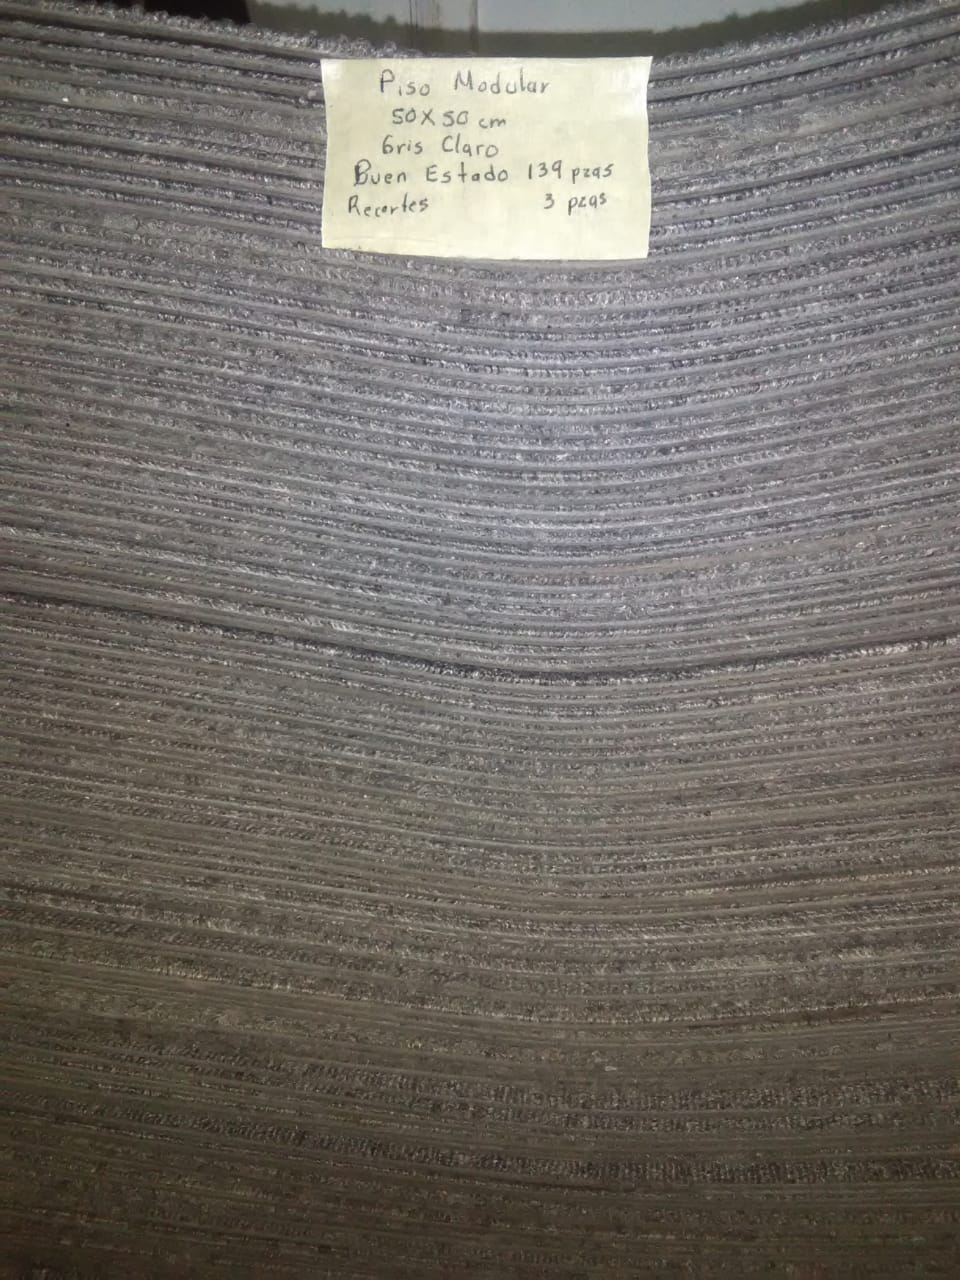 Piso Modular
50X50 cm
Gris Claro
Buen Estado 139 pzas
Recortes 3 pzas